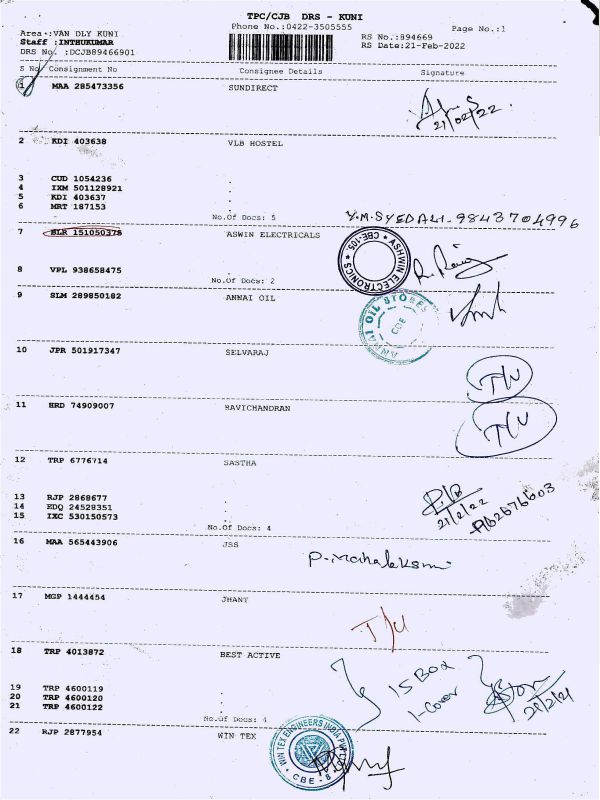 TPC/CJB DRS - KUNI
Phone No.:0422-3505555
Page No.:1
Area :VAN DLY KUNI
Staff :INTHUKUMAR
DRS No. :DCJB89466901
RS No.:894669
RS Date:21-Feb-2022
S No Consignment No Consignee Details Signature
1 MAA 285473356 SUNDIRECT
21/02/22
2 KDI 403638 VLB HOSTEL
3 CUD 1054236 .
4 IXM 501128921 .
5 KDI 403637 .
6 MRT 187153 .
No.Of Docs: 5 Y.M.SYED ALI-9843704996
7 BLR 151050378 ASWIN ELECTRICALS
ASHWIN ELECTRONICS * CBE-105. *
8 VPL 938658475 .
No.Of Docs: 2
9 SLM 289850182 ANNAI OIL
ANNAI OIL STORES
CBE
10 JPR 501917347 SELVARAJ
T/U
11 HRD 74909007 RAVICHANDRAN
T/U
12 TRP 6776714 SASTHA
21/2/22
13 RJP 2868677 .
14 EDQ 24528351 .
15 IXC 530150573 .
No.Of Docs: 4
16 MAA 565443906 JSS
P. Mahalakshmi
17 MGP 1444454 JHANT
T/U
18 TRP 4013872 BEST ACTIVE
15 Box
1-Cover
19 TRP 4600119 .
20 TRP 4600120 .
21 TRP 4600122 .
No.Of Docs: 4
22 RJP 2877954 WIN TEX
WINTEX ENGINEERS INDIA PVT LTD
* CBE-6 *